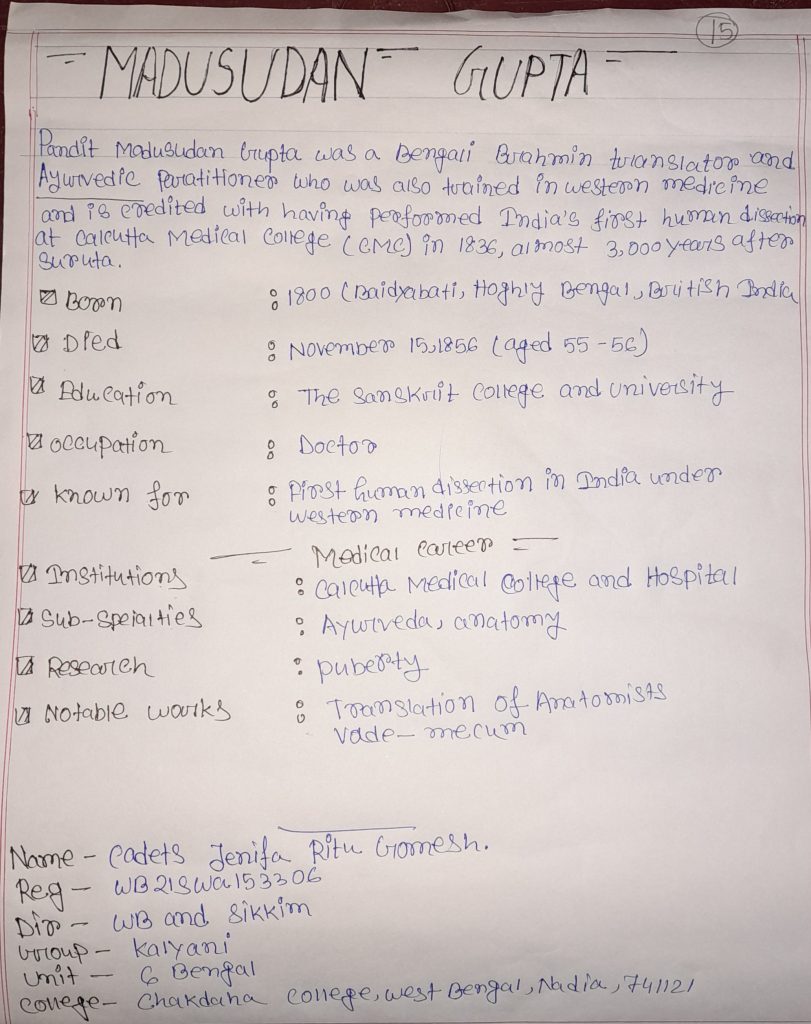 15
MADUSUDAN GUPTA
Pandit Madusudan Grupta was a Bengali Brahmin translator and
Ayurvedic Paratitioner who was also trained in western medicine
and is credited with having performed India's first human dissection
at Calcutta Medical College (CMC) in 1836, almost 3,000 years after
Suruta.
Born : 1800 (Baidyabati, Hoghly Bengal, British India
Died : November 15,1856 (aged 55-56)
Education : The Sanskrit College and University
occupation : Doctor
Known for : First human dissection in India under
western medicine
Medical career
Institutions : Calcutta Medical College and Hospital
Sub-Speialties : Ayurveda, anatomy
Research : puberty
Notable works : Translation of Anatomists
Vade-mecum
Name - Cadets Jenifa Ritu Gomesh.
Reg - WB21SWA153306
Dir - WB and Sikkim
Group - Kalyani
Unit - 6 Bengal
College - Chakdaha College, West Bengal, Nadia, 741121